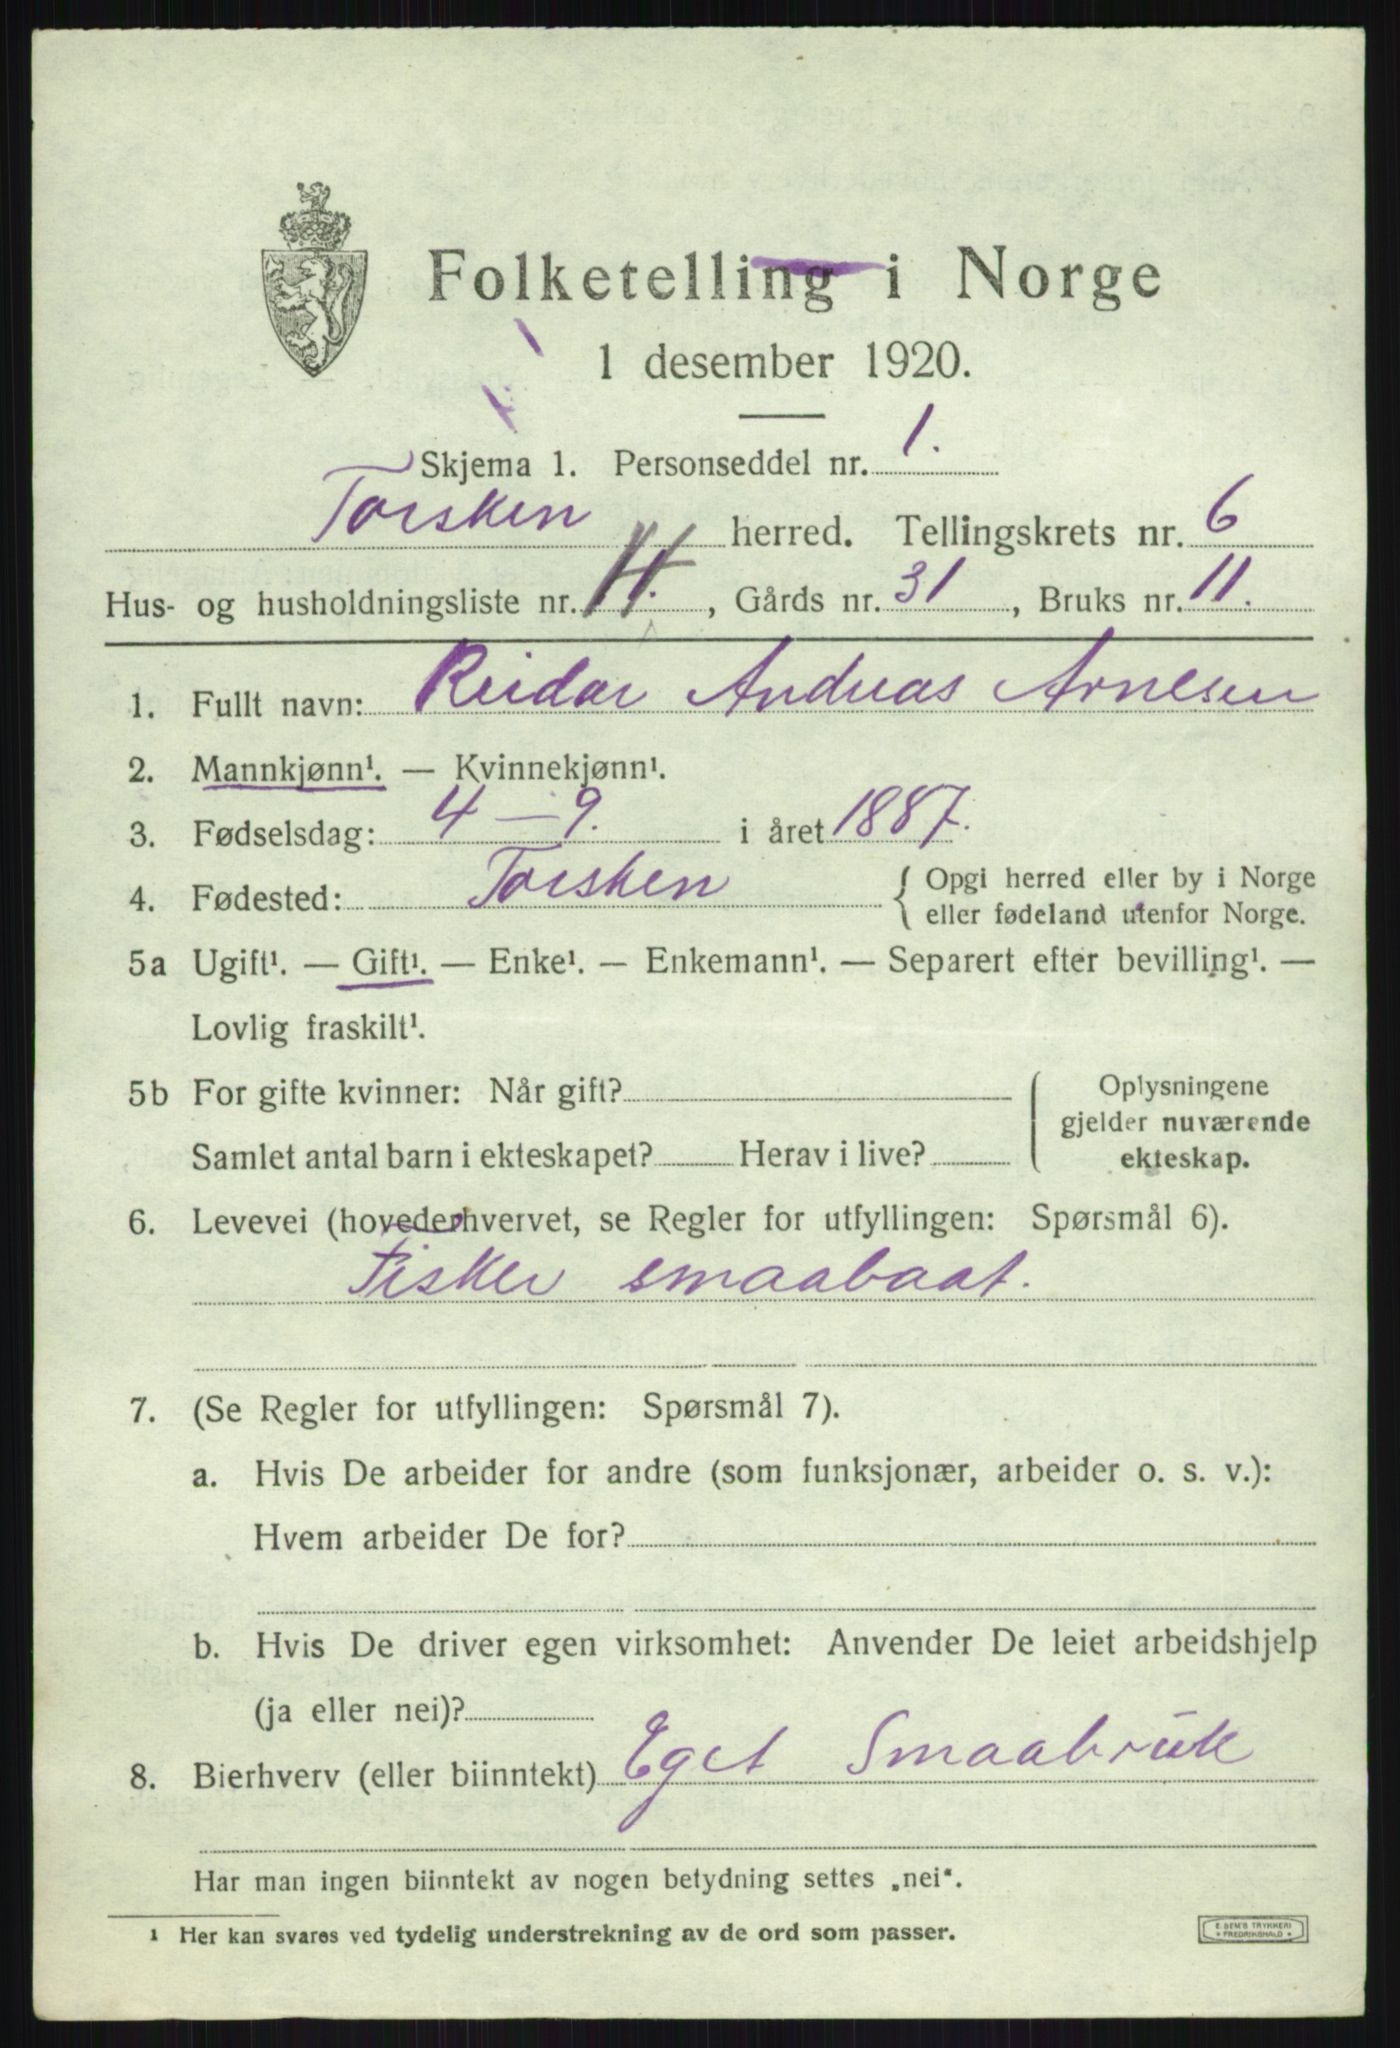 Folketelling i Norge
1 desember 1920.
Skjema 1. Personseddel nr. 1.
Torsken herred. Tellingskrets nr. 6
Hus- og husholdningsliste nr. , Gårds nr. 31, Bruks nr. 11.
1. Fullt navn: Reidar Andreas Arnesen
2. Mannkjønn¹. — Kvinnekjønn¹.
3. Fødselsdag: 4 — 9. i året 1887.
4. Fødested: Torsken { Opgi herred eller by i Norge
eller fødeland utenfor Norge.
5a Ugift¹. — Gift¹. — Enke¹. — Enkemann¹. — Separert efter bevilling¹. —
Lovlig fraskilt¹.
5b For gifte kvinner: Når gift?
Samlet antal barn i ekteskapet? Herav i live?
Oplysningene
gjelder nuværende
ekteskap.
6. Levevei (hovederhvervet, se Regler for utfyllingen: Spørsmål 6).
Fisker smaabaat.
7. (Se Regler for utfyllingen: Spørsmål 7).
a. Hvis De arbeider for andre (som funksjonær, arbeider o. s. v.):
Hvem arbeider De for?
b. Hvis De driver egen virksomhet: Anvender De leiet arbeidshjelp
(ja eller nei)?
8. Bierhverv (eller biinntekt) Eget Smaabruk
Har man ingen biinntekt av nogen betydning settes „nei“.
¹ Her kan svares ved tydelig understrekning av de ord som passer.
E. SEM'S TRYKKERI
* FREDRIKSHALD *